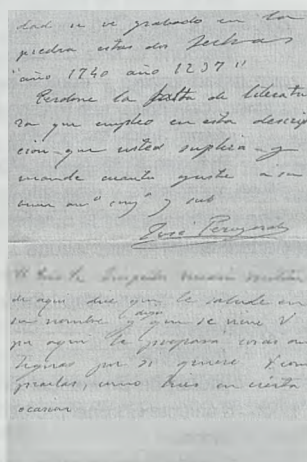 dad se ve grabado en la
piedra estas dos fechas
"año 1740 año 1237"
Perdone la falta de literatu
ra que empleo en esta descrip
ción que usted suplira y
mande cuanto guste a su
buen am° y
José
de aqui dice que le salude en
su nombre y que si viene V
por aqui le propone cosas an
tiguas por si quiere V com
prarlas, como hizo en cierta
ocasion